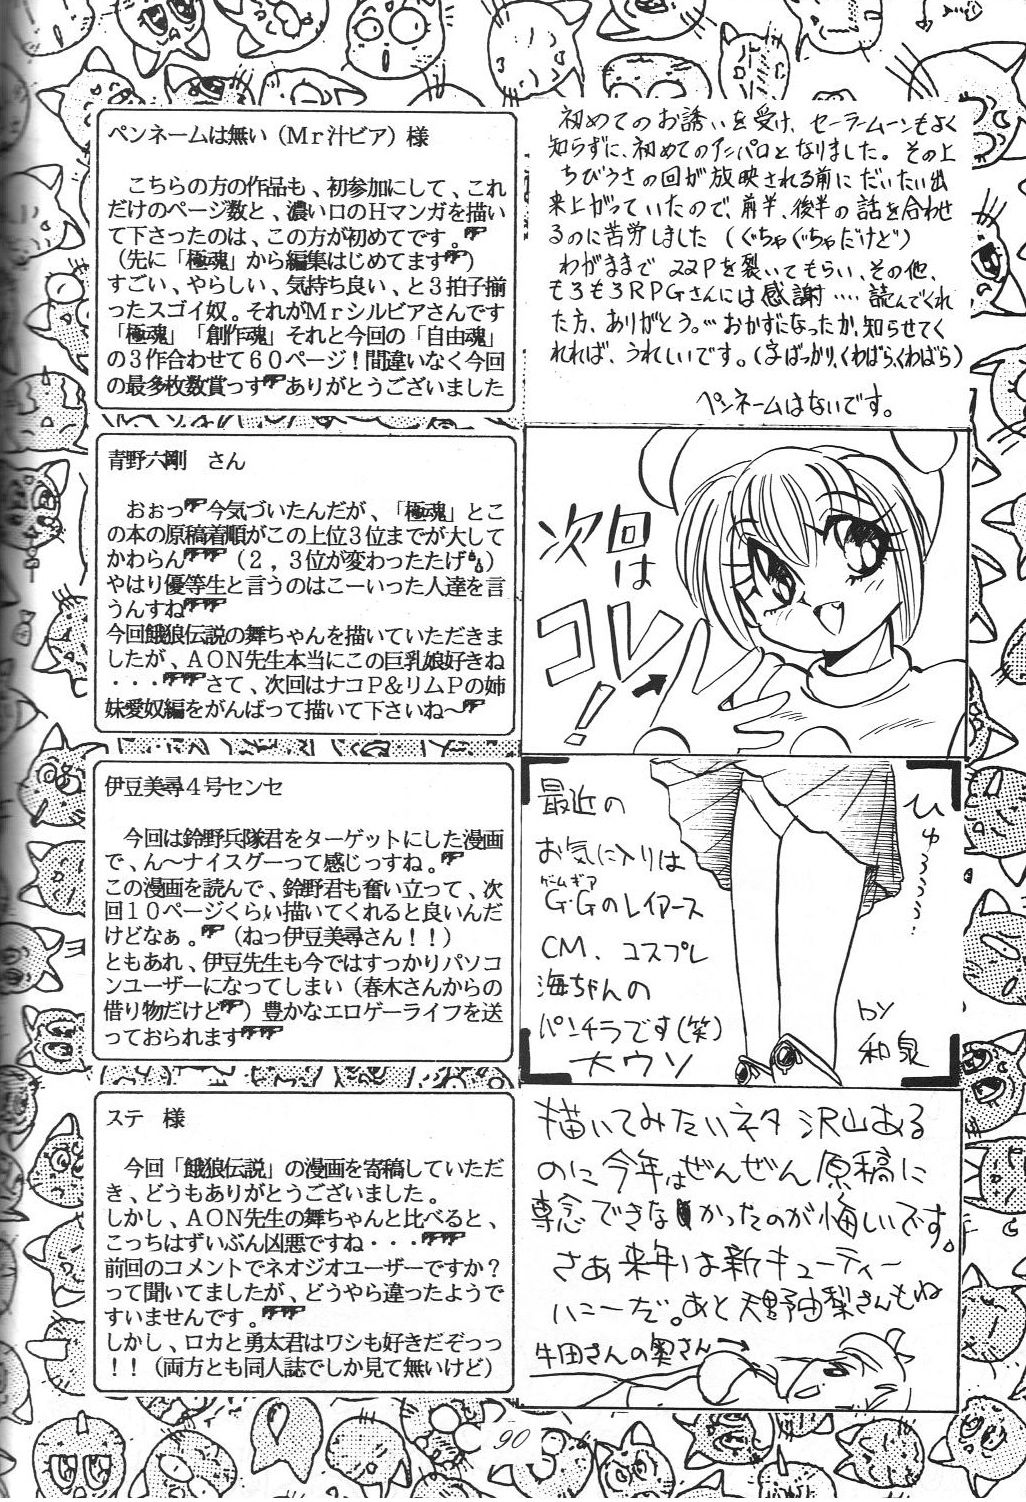 ペンネームは無い（Ｍｒ汁ビア）様
こちらの方の作品も、初参加にして、これ
だけのページ数と、濃い口のＨマンガを描い
て下さったのは、この方が初めてです。
（先に「極魂」から編集はじめてます）
すごい、やらしい、気持ち良い、と３拍子揃
ったスゴイ奴。それがＭｒシルビアさんです
「極魂」「創作魂」それと今回の「自由魂」
の３作合わせて６０ページ！間違いなく今回
の最多枚数賞っす ありがとうございました
初めてのお誘いを受け、セーラームーンもよく
知らずに、初めてのアンパロとなりました。その上
ちびうさの回が放映される前にだいたい出
来上がっていたので、前半、後半の話を合わせ
るのに苦労しました（ぐちゃぐちゃだけど）
わがままで22Pを裂いてもらい、その他、
もろもろRPGさんには感謝‥‥読んでくれ
た方、ありがとう。…おかずになったか、知らせてく
れれば、うれしいです。（字ばっかり、くわばらくわばら）
ペンネームはないです。
青野六剛　さん
おぉっ 今気づいたんだが、「極魂」とこ
の本の原稿着順がこの上位３位までが大して
かわらん （２，３位が変わったたげ）
やはり優等生と言うのはこーいった人達を言
うんすね
今回餓狼伝説の舞ちゃんを描いていただきま
したが、ＡＯＮ先生本当にこの巨乳娘好きね
・・・ さて、次回はナコＰ＆リムＰの姉
妹愛奴編をがんばって描いて下さいね～
次回は
コレ！
伊豆美尋４号センセ
今回は鈴野兵隊君をターゲットにした漫画
で、ん～ナイスグーって感じっすね。
この漫画を読んで、鈴野君も奮い立って、次
回１０ページくらい描いてくれると良いんだ
けどなぁ。（ねっ伊豆美尋さん！！）
ともあれ、伊豆先生も今ではすっかりパソコ
ンユーザーになってしまい（春木さんからの
借り物だけど）豊かなエロゲーライフを送
っておられます
最近の
お気に入りは
ゲームギア
G・Gのレイアース
CM、コスプレ
海ちゃんの
パンチラです（笑）
大ウソ
ひゅうううう…
by
和泉
ステ　様
今回「餓狼伝説」の漫画を寄稿していただ
き、どうもありがとうございました。
しかし、ＡＯＮ先生の舞ちゃんと比べると、
こっちはずいぶん凶悪ですね・・・
前回のコメントでネオジオユーザーですか？
って聞いてましたが、どうやら違ったようで
すいませんです。
しかし、ロカと勇太君はワシも好きだぞっっ
！！（両方とも同人誌でしか見て無いけど）
描いてみたいネタ 沢山ある
のに今年はぜんぜん原稿に
専念できなかったのが悔しいです。
さあ来年は新キューティー
ハニーだ。あと天野由梨さんもね
牛田さんの奥さん→
90